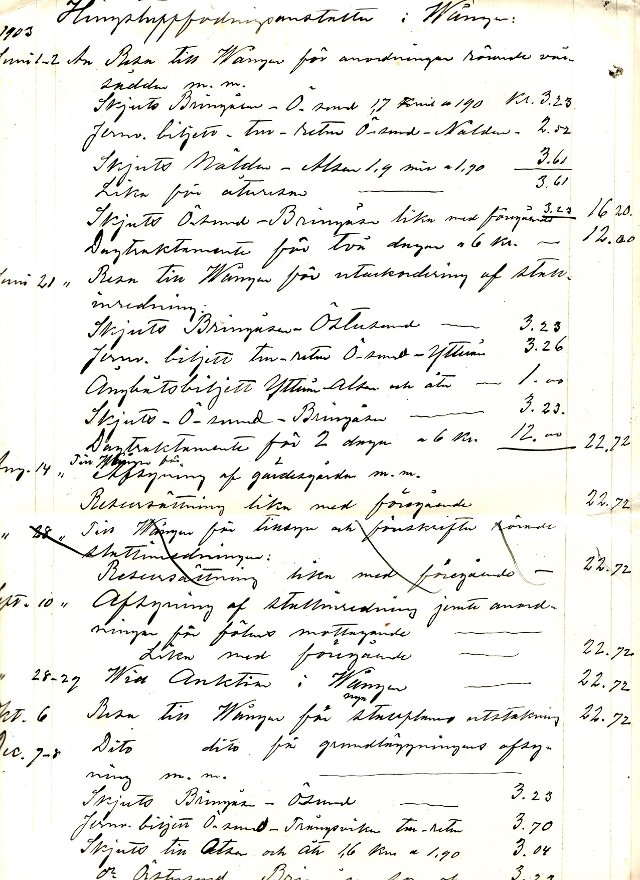 1903 Hingstuppfödningsanstalten i Wången:
Juni 1-2 An Resa till Wången för anordningar rörande vår-
sådden m. m.
Skjuts Bringåsen - Ö-sund 1,7 mil a 1.90 Kr. 3.23
Jernv. biljett - tur-retur Ö-sund - Nälden - 2.52
Skjuts Nälden - Alsen 1,9 mil a 1.90 3.61
Lika för återresan 3.61
Skjuts Ö-sund - Bringåsen lika med föregående 3.23 16 20.
Dagtraktamente för två dagar a 6 kr. - 12.00
Juni 21 " Resa till Wången för utackordering af stall-
inredning:
Skjuts Bringåsen - Östersund 3.23
Jernv. biljett tur-retur Ö-sund - Ytterån 3.26
Ångbåtsbiljett Ytterån - Alsen och åter - 1.00
Skjuts - Ö-sund - Bringåsen 3.23.
Dagtraktamente för 2 dagar a 6 kr. 12.00 22.72
Aug. 14 " Till Wången för Afsyning af gärdesgårdar m. m.
Reseersättning lika med föregående 22.72
" 28 " Till Wången för tillsyn och föreskrifter rörande
stallinredningen:
Reseersättning lika med föregående - 22.72
Sept. 10 " Afsyning af stallinredning jemte anord-
ningar för fölens mottagande
Lika med föregående 22.72
" 28-29 Wid Auktion i Wången 22.72
Okt. 6 Resa till Wången för nya stallplanens utstakning 22.72
Dec. 7-8 Dito dito för grundläggningens afsy-
ning m. m.
Skjuts Bringåsen - Ösund 3.23
Jernv. biljett Ö-sund - Trångsviken tur-retur 3.70
Skjuts till Alsen och åter 1,6 a 1.90 3.04
Östersund